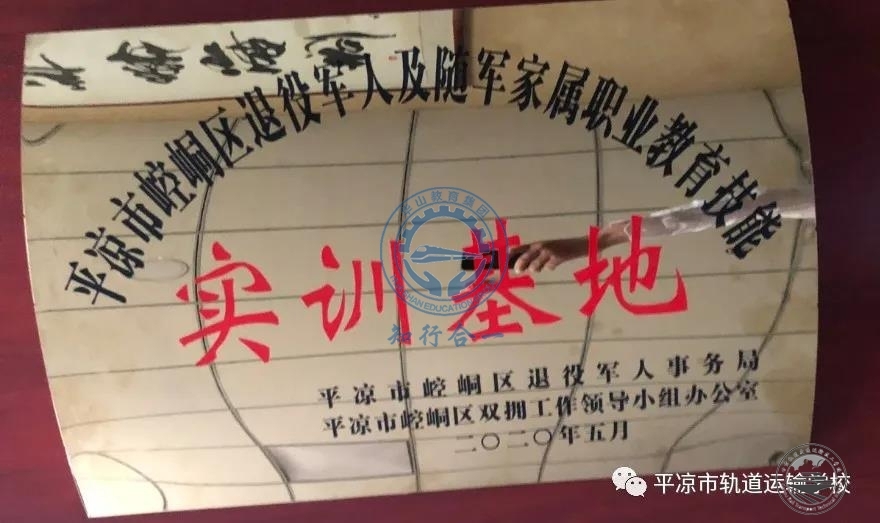 平凉市崆峒区退役军人及随军家属职业教育技能
实训基地
平凉市崆峒区退役军人事务局
平凉市崆峒区双拥工作领导小组办公室
二〇二〇年五月
知行合一
平凉市轨道运输学校